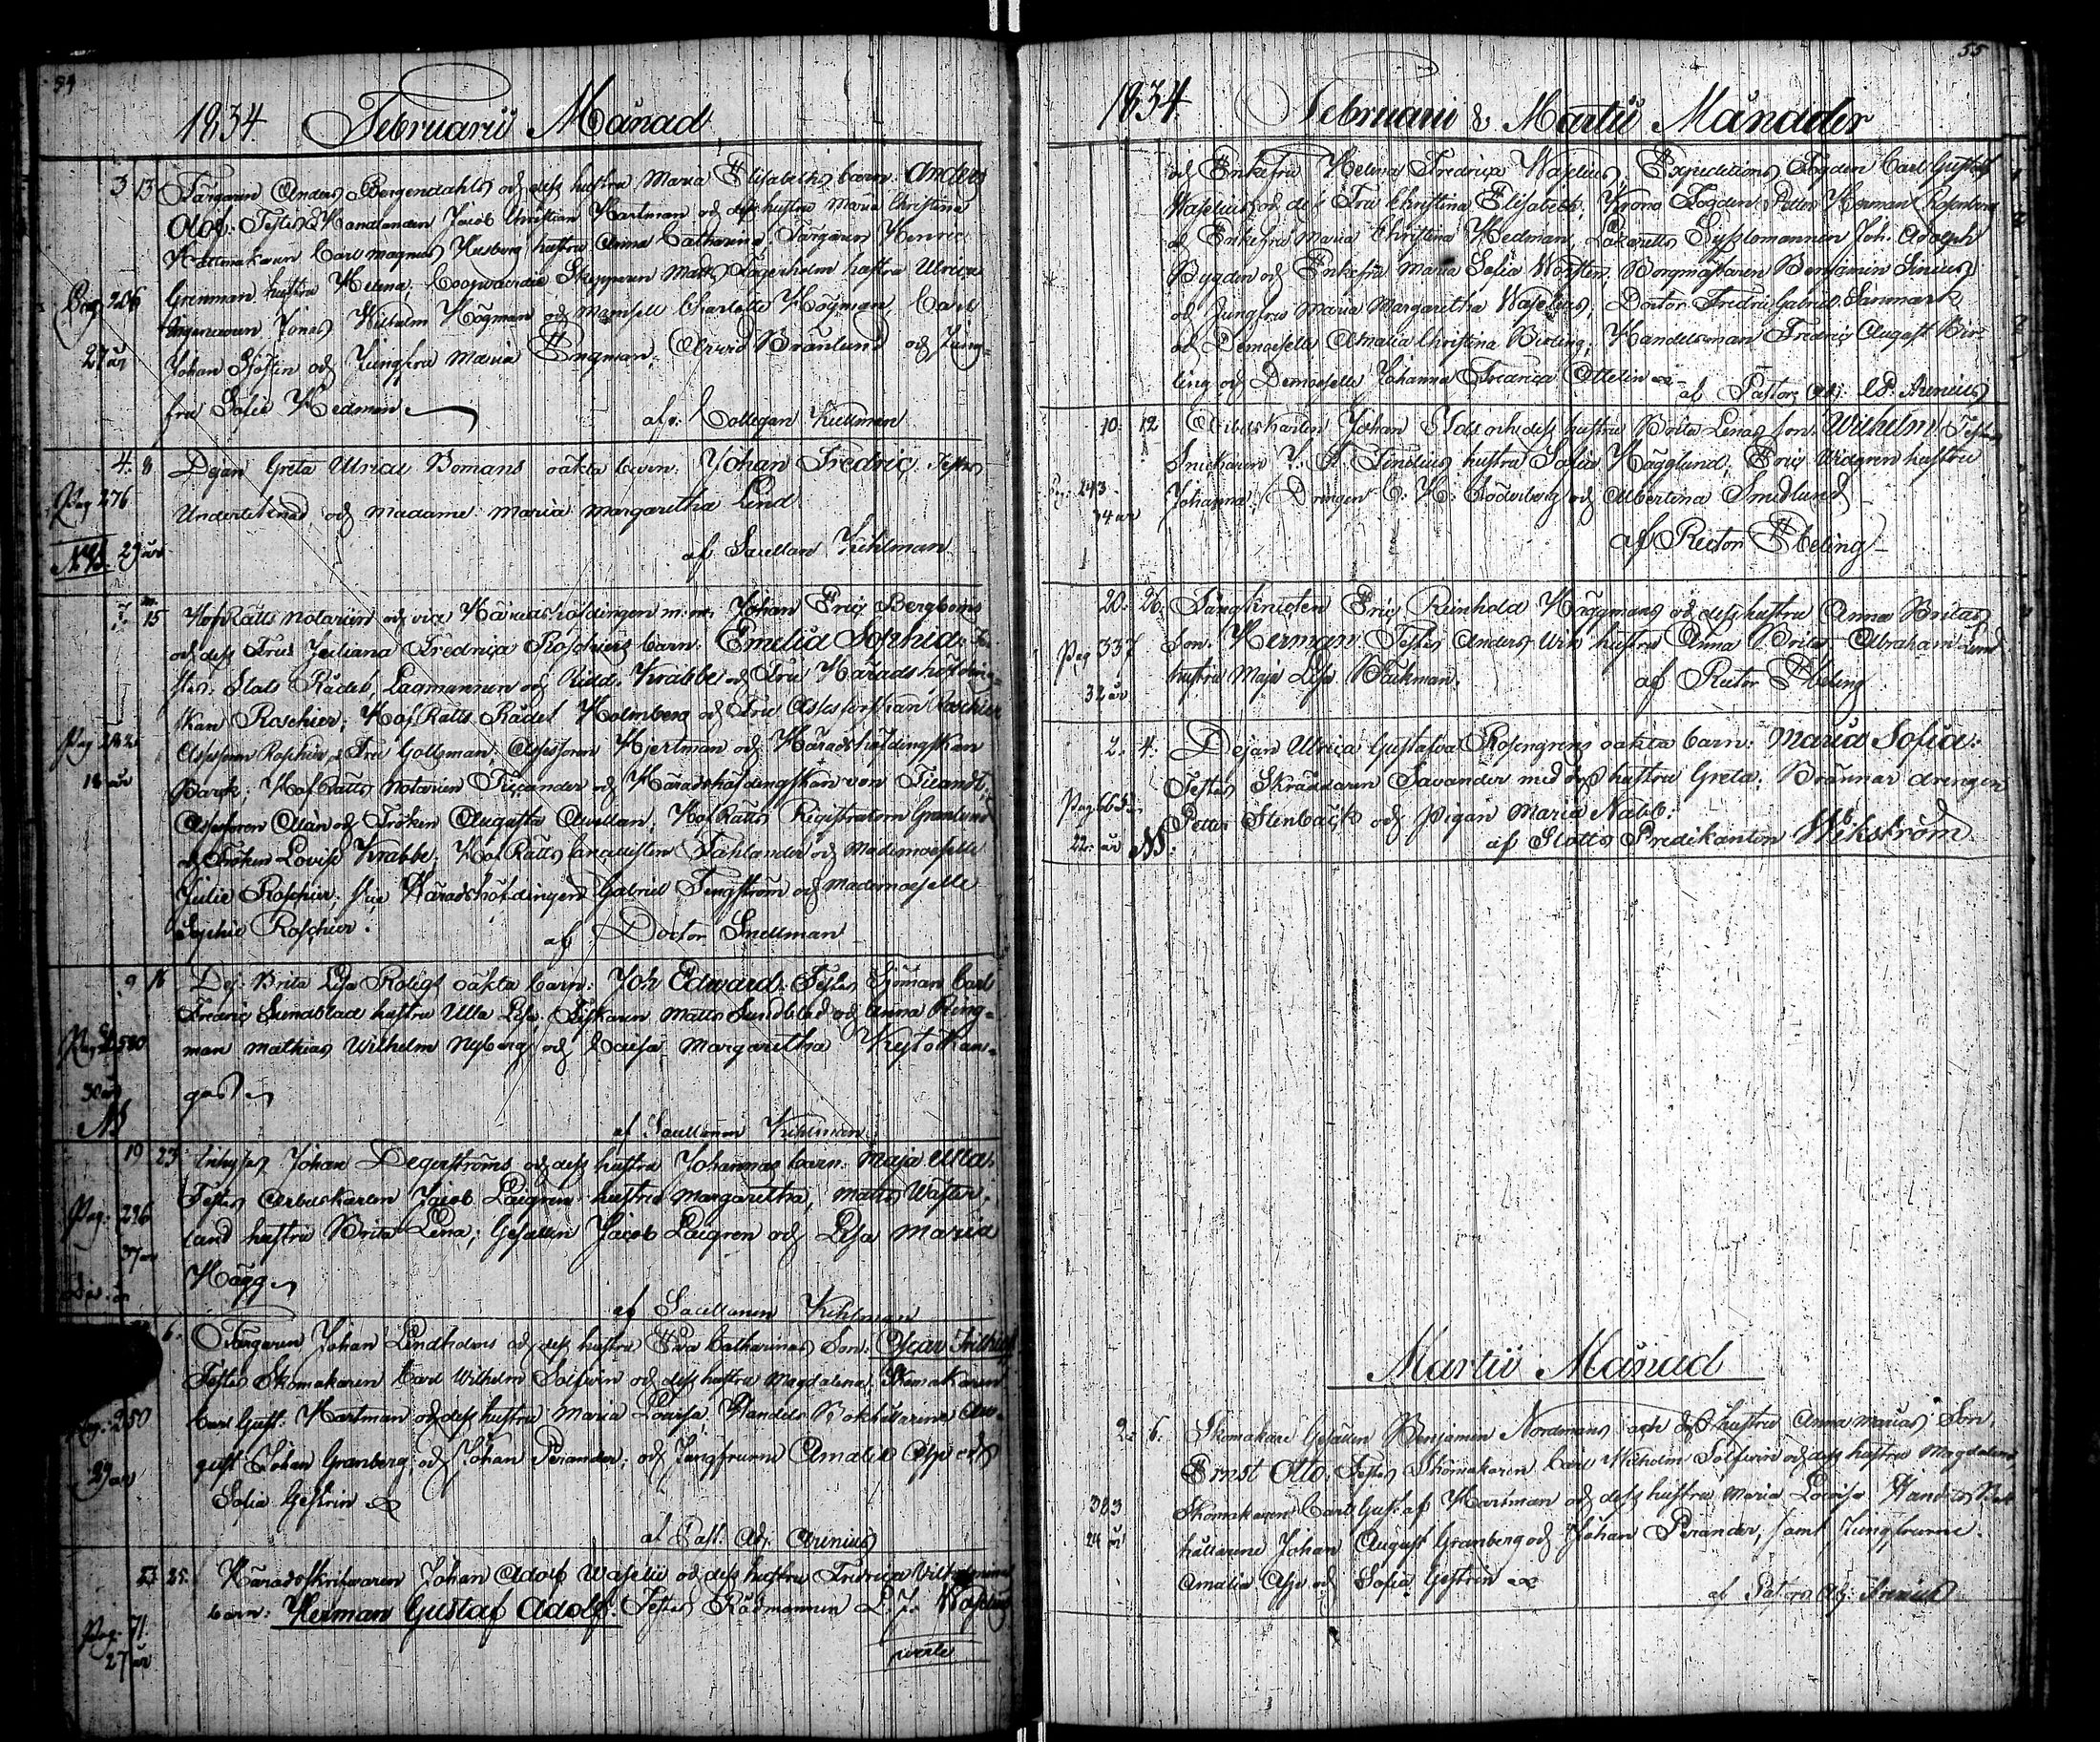 54
1834. Februarii Månad
3 13 Färgaren Anders Bergendahls och dess hustru Maria Elisabeths barn: Anders
Olof. Testes Handlanden Jacob Christian Hartman och dess hustru Maria Christina
Hattmakaren Carl Magnus Husberg hustru Anna Catharina, Färgaren Henric
Grenman hustru Helena, Coopvaerdie Skepparen Matts Fagerholm hustru Ulrica
Pag 206
Jonas Wilhelm Högman och Mamsell Charlotta Högman, Carl
27 år
Johan Sjöstén och Jungfru Maria Engman, Arvid Brånlund och Jung-
fru Sofie Hedman
af v. Collegan Kiellman
4. 8 Dejan Greta Ulricas Bomans oäkta barn. Johan Fredric, Testes
Pag 276
Undertecknad och Madame Maria Margaretha Lind.
NB. 29 år
af Sacellan Kihlman
7. 15 HofRätts Notarien och vice Häradshöfdingen m.m. Johan Eric Bergboms
och dess Frus Juliana Fredrica Roschiers barn: Emelia Sophia. Te-
stes: Stats Rådet, Lagmannen och Ridd. Krabbe och Fru Häradshöfding-
skan Roschier; HofRätts Rådet Holmberg och Fru Assessorskan Roschier
Assessoren Roschier & Fru Gollsman; Assessoren Hjertman och Häradshöfdingskan
18 år
Barck; HofRätts Notarien och Häradshöfdingskan von
Assessoren Alan och Fröken Augusta Avellan; HofRätts Registratorn Granlund
och Fröken Lovise Krabbe; HofRätts Cancellisten Fahlander och Mademoiselle
Julie Roschier; Vice Häradshöfdingen Gabriel Tengström och Mademoiselle
Sophie Roschier.
af Doctor Snellman
9 16 Dej. Brita Lisa Roligs oäkta barn: Joh Edward. Testes Sjöman Carl
Fredric Sundblad hustru Ulla Lisa, Fiskaren Matts Sundblad och Anna Ring-
Pag 580
man Mathias Wilhelm Nyberg och Caisa Margaretha
30 år
gas
NB
af Sacellanen Kihlman
19 23 Inhyses Johan Degerströms och dess hustru Johannas barn: Maja Ulla.
Testes Arbetskarlen Jacob Laigren hustru Margaretha, Matts Wäster-
Pag: 296
land hustru Brita Lena, Gesällen Jacob Laigren och Lisa Maria
37 år
Hägg
af Sacellanen Kihlman
6. Färgaren Johan Lindholms och dess hustru Eva Catharinas Son: Oscar
Testes Skomakaren Carl Wilhelm Solfvin och dess hustru Magdalena, Skomakaren
Pag: 250
Carl Gust. Hartman och dess hustru Maria Lovisa, Handels Bokhållarene Au-
gust Johan Granberg och Johan Perander, och Jungfrurne Amalia Asp och
29 år
Sofia Gestrin
af Past. Adj. Arenius
25. Häradsskrifvaren Johan Adolf Wasélii och dess hustru Fredrica Vilhelminas
barn: Herman Gustaf Adolf. Testes Rådmannen L. J. Wasélius
Pag. 71
27 år
verte
55
1834. Februarii & Martii Månader
och Enkefru Helena Fredrica Wasélius, Expeditions Fogden Carl Gustaf
Wasélius och dess Fru Christina Elisabeth, Krono Fogden Petter Herman Rosenberg
och Enkefru Maria Christina Hedman, Lazaretts Sysslomannen Joh. Adolph
Bygdén och Enkefru Maria Sofia Wolsten, Borgmästaren Benjamin
och Jungfru Maria Margaretha Wasélius, Doctor Fredric Gabriel Sanmark
och Demoiselle Amalia Christina Birling, Handelsman Fredric August Bir-
ling och Demoiselle Johanna Fredrica Ottelin
af Pastors Adj: Arenius
10. 12 Arbetskarlen Johan och dess hustru Brita Lenas son: Wilhelm. Testes
Snickaren J. A. Tinelius hustru Sofia Hägglund, Eric Widgren hustru
243
34 år
Johanna, Drengen C. H. Söderberg och Albertina Smedlund
af Rector Ebeling
20. 26. Fångknekten Eric Reinhold Häggmans och dess hustru Anna Britas
Pag 337
Son: Herman. Testes Anders Wik hustru Anna Brita Abraham Lund
hustru Maja Lisa Backman.
32 år
af Rector Ebeling
2. 4. Dejan Ulrica Gustafva Rosengrens oäkta barn: Maria Sofia.
Testes Skräddaren Savander med dess hustru Greta, Brännar drengen
Pag 665
Petter Stenbäck och Pigan Maria Nabb.
22 år NB.
af Slotts Predikanten Wikström
Martii Månad
2. 6. Skomakare Gesällen Benjamin Nordmans och dess hustru Anna Marias Son,
Ernst Otto. Testes Skomakaren Carl Wilhelm Solfvin och dess hustru Magdalena,
383
Skomakaren Carl Gustaf Hartman och dess hustru Maria Lovisa, Handels Bok
24 år
hållarene Johan August Granberg och Johan Perander, samt Jungfrurne
Amalia Asp och Sofia Gestrin
af Pastors Adj: Arenius